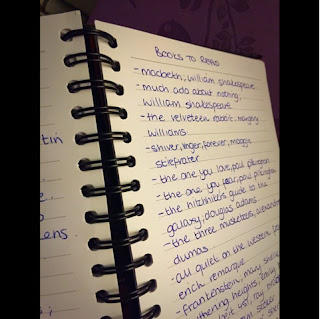 BOOKS TO READ
- macbeth, william shakespeare
- much ado about nothing,
william shakespeare
- the velveteen rabbit, margery
williams
- shiver, linger, forever, maggie
stiefvater
- the one you love, paul pilkington
- the one you fear, paul pilkington
- the hitchhiker's guide to the
galaxy, douglas adams
- the three musketeers, alexandre
dumas
- all quiet on the western
erich remarque
- frankenstein, mary shelley
wuthering heights, emily
ray
tin
ens